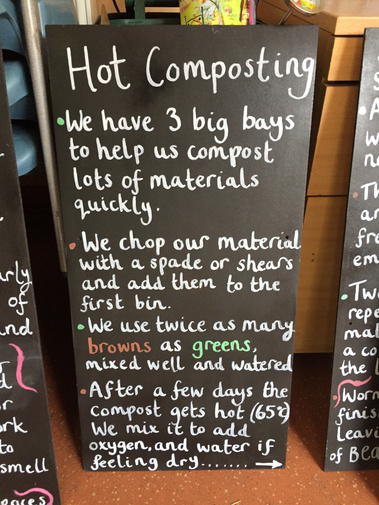 Hot Composting
• We have 3 big bays
to help us compost
lots of materials
quickly.
• We chop our material
with a spade or shears
and add them to the
first bin.
• We use twice as many
browns as greens,
mixed well and watered
• After a few days the
compost gets hot (65°c)
We mix it to add
oxygen, and water if
feeling dry....... →
of
smell